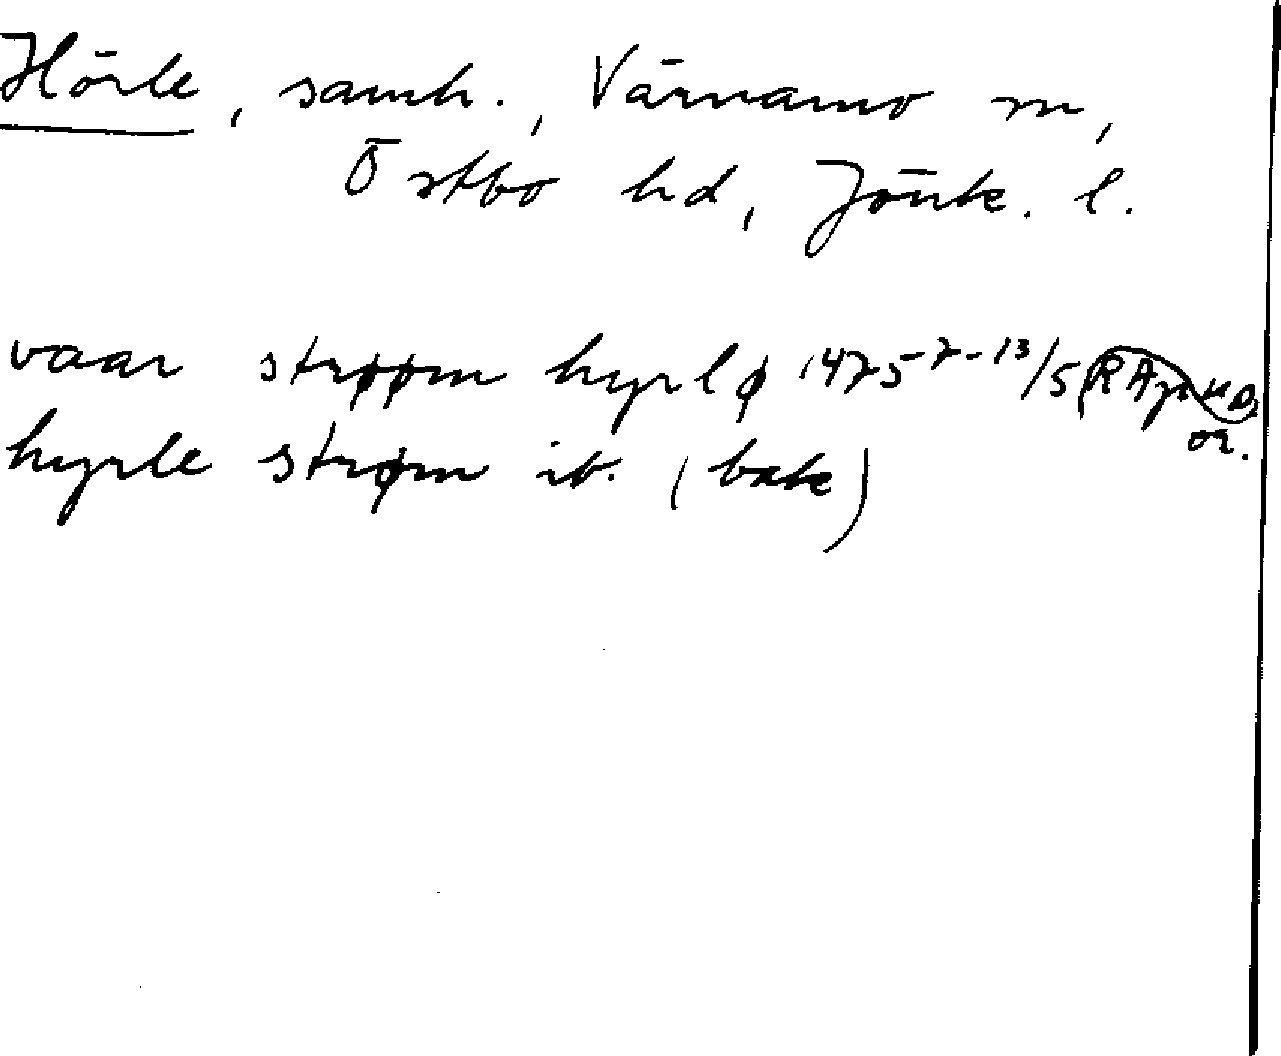 Hörle, samh., Värnamo sn,
Östbo hd, Jönk. l.
vaar strøøm hyrlø 1475 7-13/5 (RAp
or.
hyrle strøm ib. (bak)